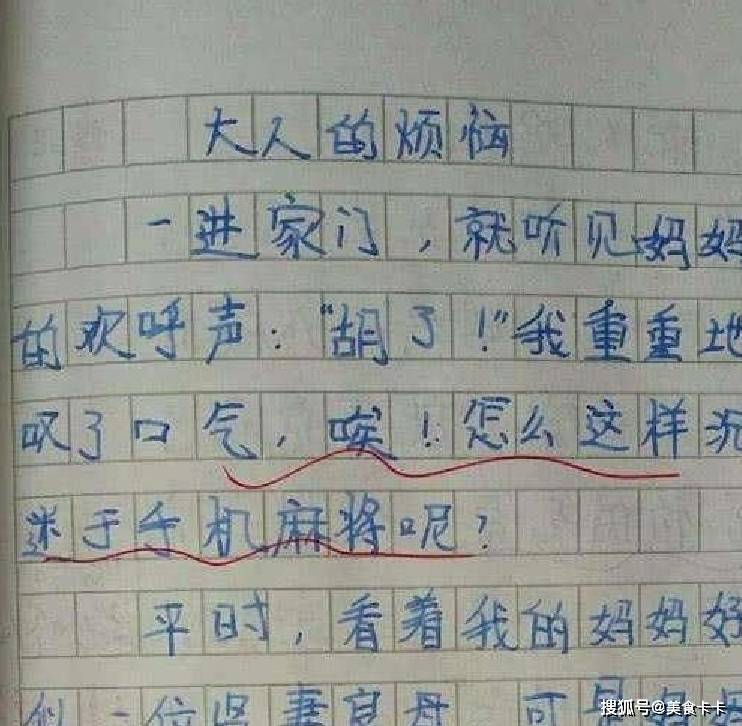 大人的烦恼
一进家门,就听见妈妈
的欢呼声:"胡了!"我重重地
叹了口气,唉!怎么这样沉
迷于手机麻将呢?
平时,看着我的妈妈好
似一位贤妻良母 可是
搜狐号@美食卡卡